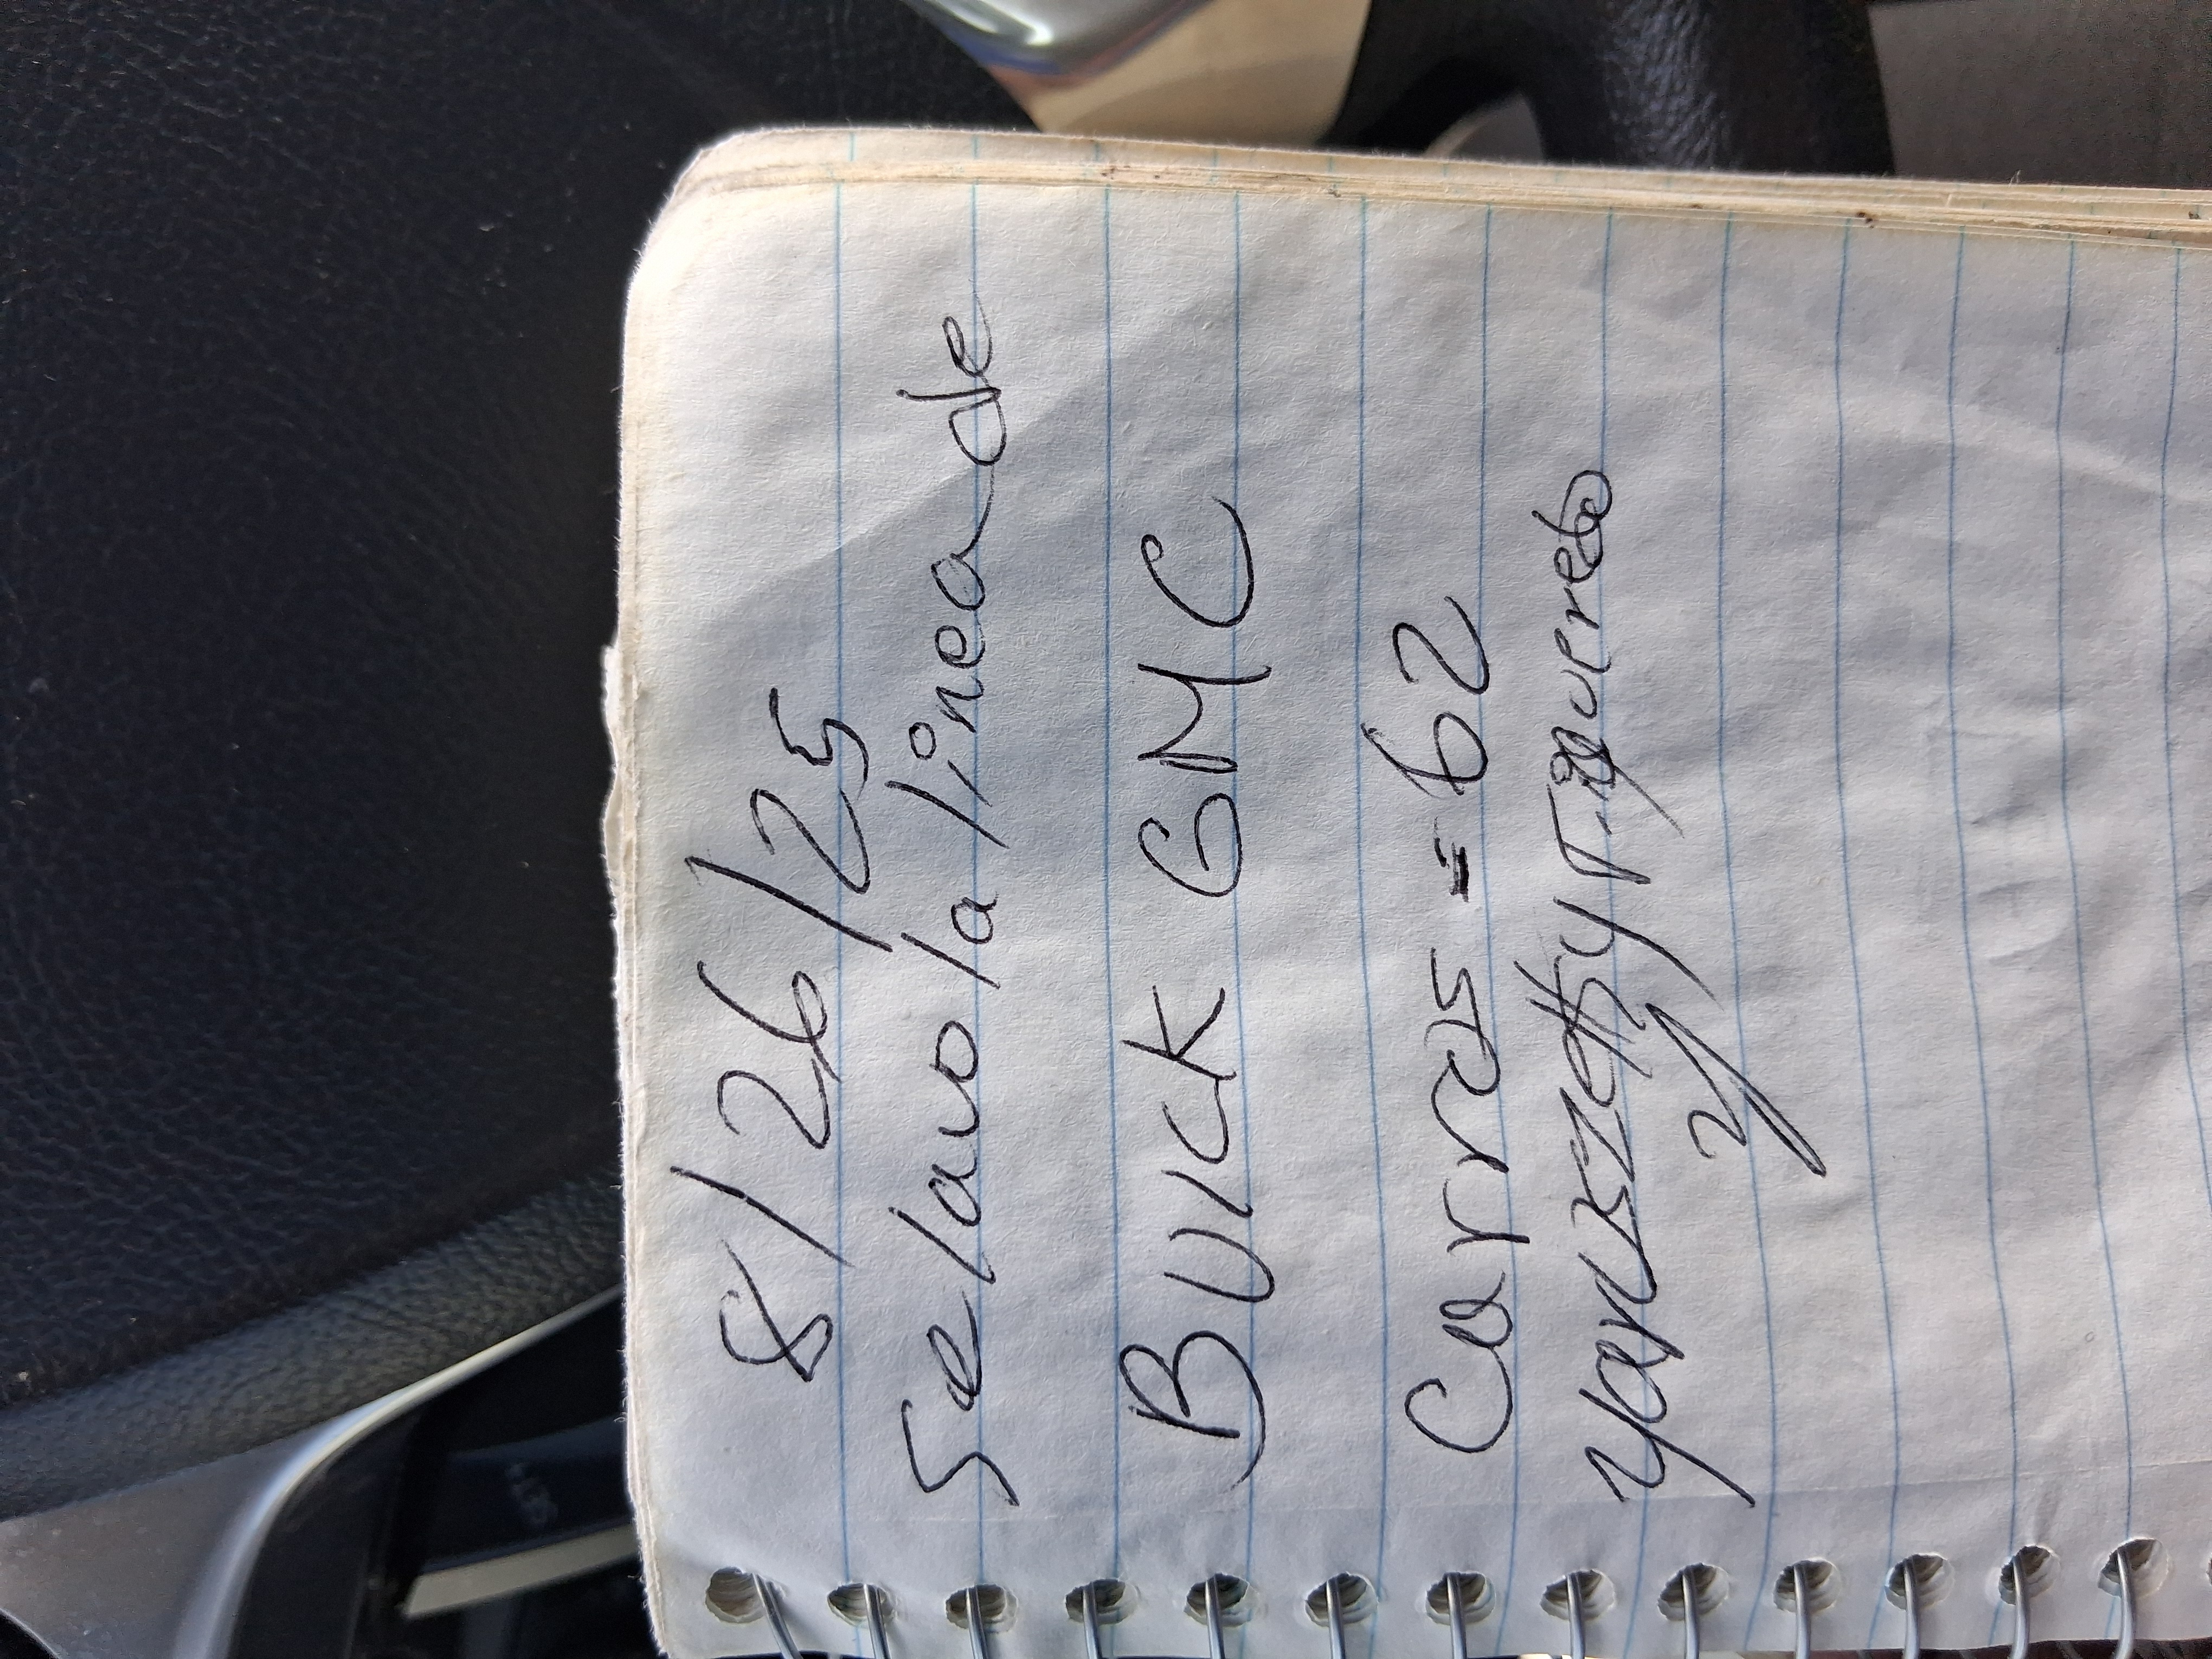 8/26/25
Se lavo la linea de
Buick GMC
Carros = 62
Yaruszetty
y